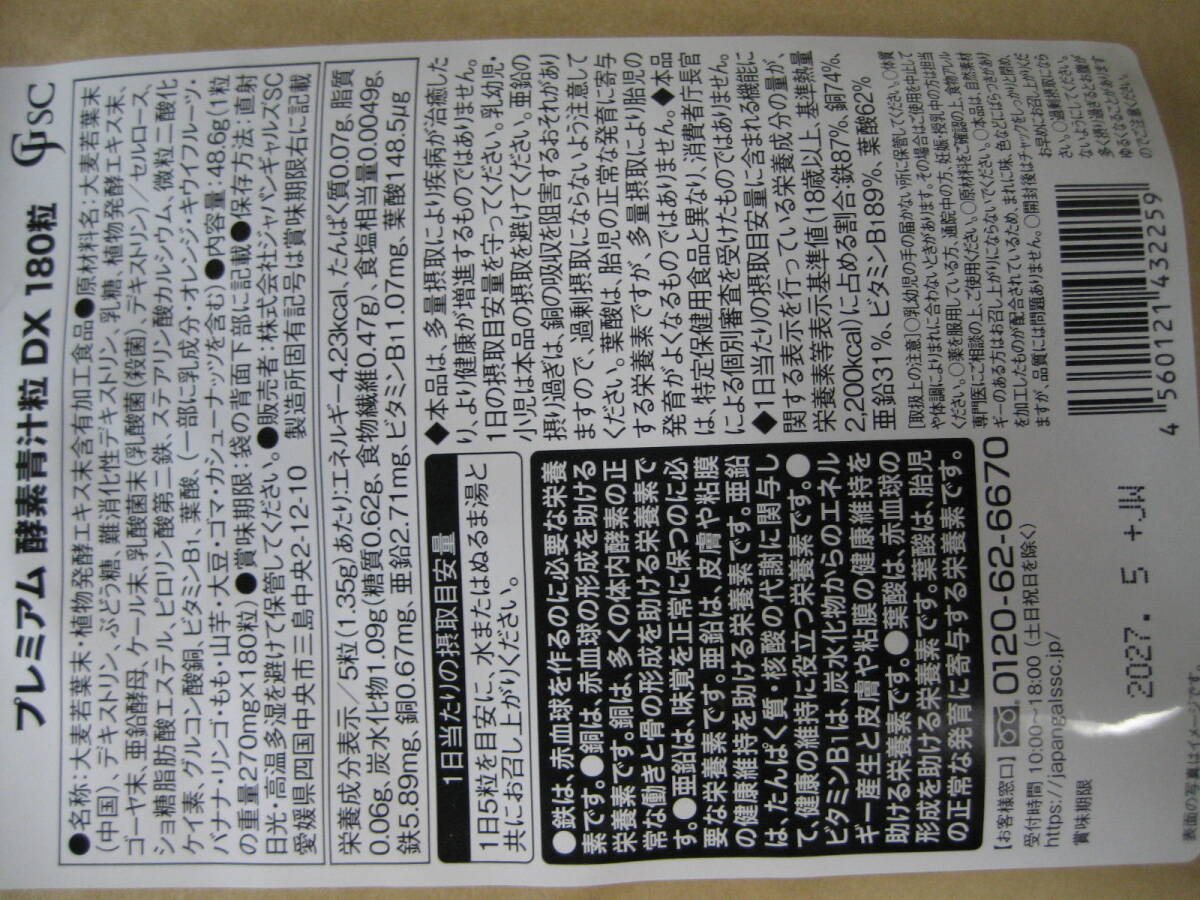 プレミアム 酵素青汁粒 DX 180粒
GJSC
●名称:大麦若葉末・植物発酵エキス末含有加工食品●原材料名:大麦若葉末
(中国)、デキストリン、ぶどう糖、難消化性デキストリン、乳糖、植物発酵エキス末、
ゴーヤ末、亜鉛酵母、ケール末、乳酸菌末(乳酸菌(殺菌)、デキストリン)／セルロース、
ショ糖脂肪酸エステル、ピロリン酸第二鉄、ステアリン酸カルシウム、微粒二酸化
ケイ素、グルコン酸銅、ビタミンB1、葉酸、(一部に乳成分・オレンジ・キウイフルーツ・
バナナ・リンゴ・もも・山芋・大豆・ゴマ・カシューナッツを含む)●内容量:48.6g(1粒
の重量270mg×180粒)●賞味期限:袋の背面下部に記載●保存方法:直射
日光・高温多湿を避けて保管してください。●販売者:株式会社ジャパンギャルズSC
愛媛県四国中央市三島中央2-12-10 製造所固有記号は賞味期限右に記載
栄養成分表示／5粒(1.35g)あたり:エネルギー4.23kcal、たんぱく質0.07g、脂質
0.06g、炭水化物1.09g(糖質0.62g、食物繊維0.47g)、食塩相当量0.0049g、
鉄5.89mg、銅0.67mg、亜鉛2.71mg、ビタミンB11.07mg、葉酸148.5μg
1日当たりの摂取目安量
1日5粒を目安に、水またはぬるま湯と
共にお召し上がりください。
●鉄は、赤血球を作るのに必要な栄養
素です。●銅は、赤血球の形成を助ける
栄養素です。銅は、多くの体内酵素の正
常な働きと骨の形成を助ける栄養素で
す。●亜鉛は、味覚を正常に保つのに必
要な栄養素です。亜鉛は、皮膚や粘膜
の健康維持を助ける栄養素です。亜鉛
は、たんぱく質・核酸の代謝に関与し
て、健康の維持に役立つ栄養素です。●
ビタミンB1は、炭水化物からのエネル
ギー産生と皮膚や粘膜の健康維持を
助ける栄養素です。●葉酸は、赤血球の
形成を助ける栄養素です。葉酸は、胎児
の正常な発育に寄与する栄養素です。
◆本品は、多量摂取により疾病が治癒した
り、より健康が増進するものではありません。
1日の摂取目安量を守ってください。乳幼児・
小児は本品の摂取を避けてください。亜鉛の
摂り過ぎは、銅の吸収を阻害するおそれがあり
ますので、過剰摂取にならないよう注意して
ください。葉酸は、胎児の正常な発育に寄与
する栄養素ですが、多量摂取により胎児の
発育がよくなるものではありません。◆本品
は、特定保健用食品と異なり、消費者庁長官
による個別審査を受けたものではありません。
◆1日当たりの摂取目安量に含まれる機能に
関する表示を行っている栄養成分の量が、
栄養素等表示基準値(18歳以上、基準熱量
2,200kcal)に占める割合:鉄87%、銅74%、
亜鉛31%、ビタミンB189%、葉酸62%
[取扱上の注意]○乳幼児の手の届かない所に保管してください。○体質
や体調によりまれに合わないときがあります。その場合はご使用を中止して
ください。○薬を服用している方、通院中の方、妊娠・授乳中の方は担当
専門医にご相談の上、ご使用ください。○原材料をご確認の上、食物アレル
ギーのある方はお召し上がりにならないでください。○本品は、自然素材
を加工したものが配合されているため、まれに味、色などにばらつきがあり
ますが、品質には問題ありません。○開封後はチャックをしっかりと閉め、
お早めにお召し上がりくだ
さい。○過剰摂取にな
ないようにしてください。
多く摂り過ぎるとお腹が
ゆるくなることがあります
のでご注意ください。
【お客様窓口】 0120-62-6670
受付時間 10:00〜18:00 (土日祝日を除く)
https://japangalssc.jp/
賞味期限
2027. 5 +JW
4 560121 432259
表面の写真はイメージです。